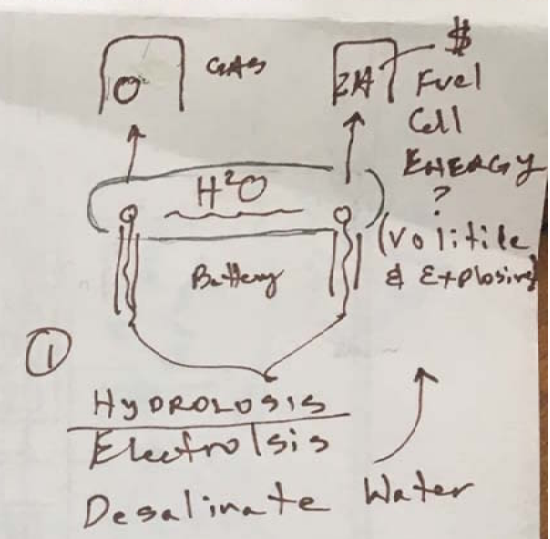 GAS
$
O
2H
Fuel
Cell
ENERGY
?
H²O
(Volitile
& Explosive)
Battery
①
HYDROLOSIS
Electrolsis
Desalinate Water